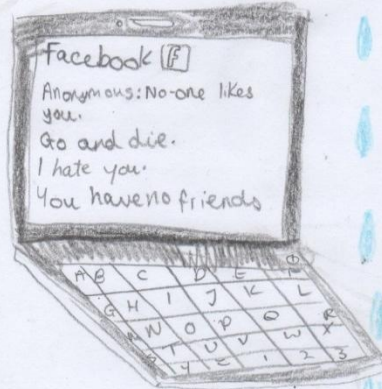 Facebook F
Anonymous: No-one likes
you.
Go and die.
I hate you.
You have no friends
A B C D E
G H I J K L
M N O P Q R
T U V W X
Y Z 1 2 3